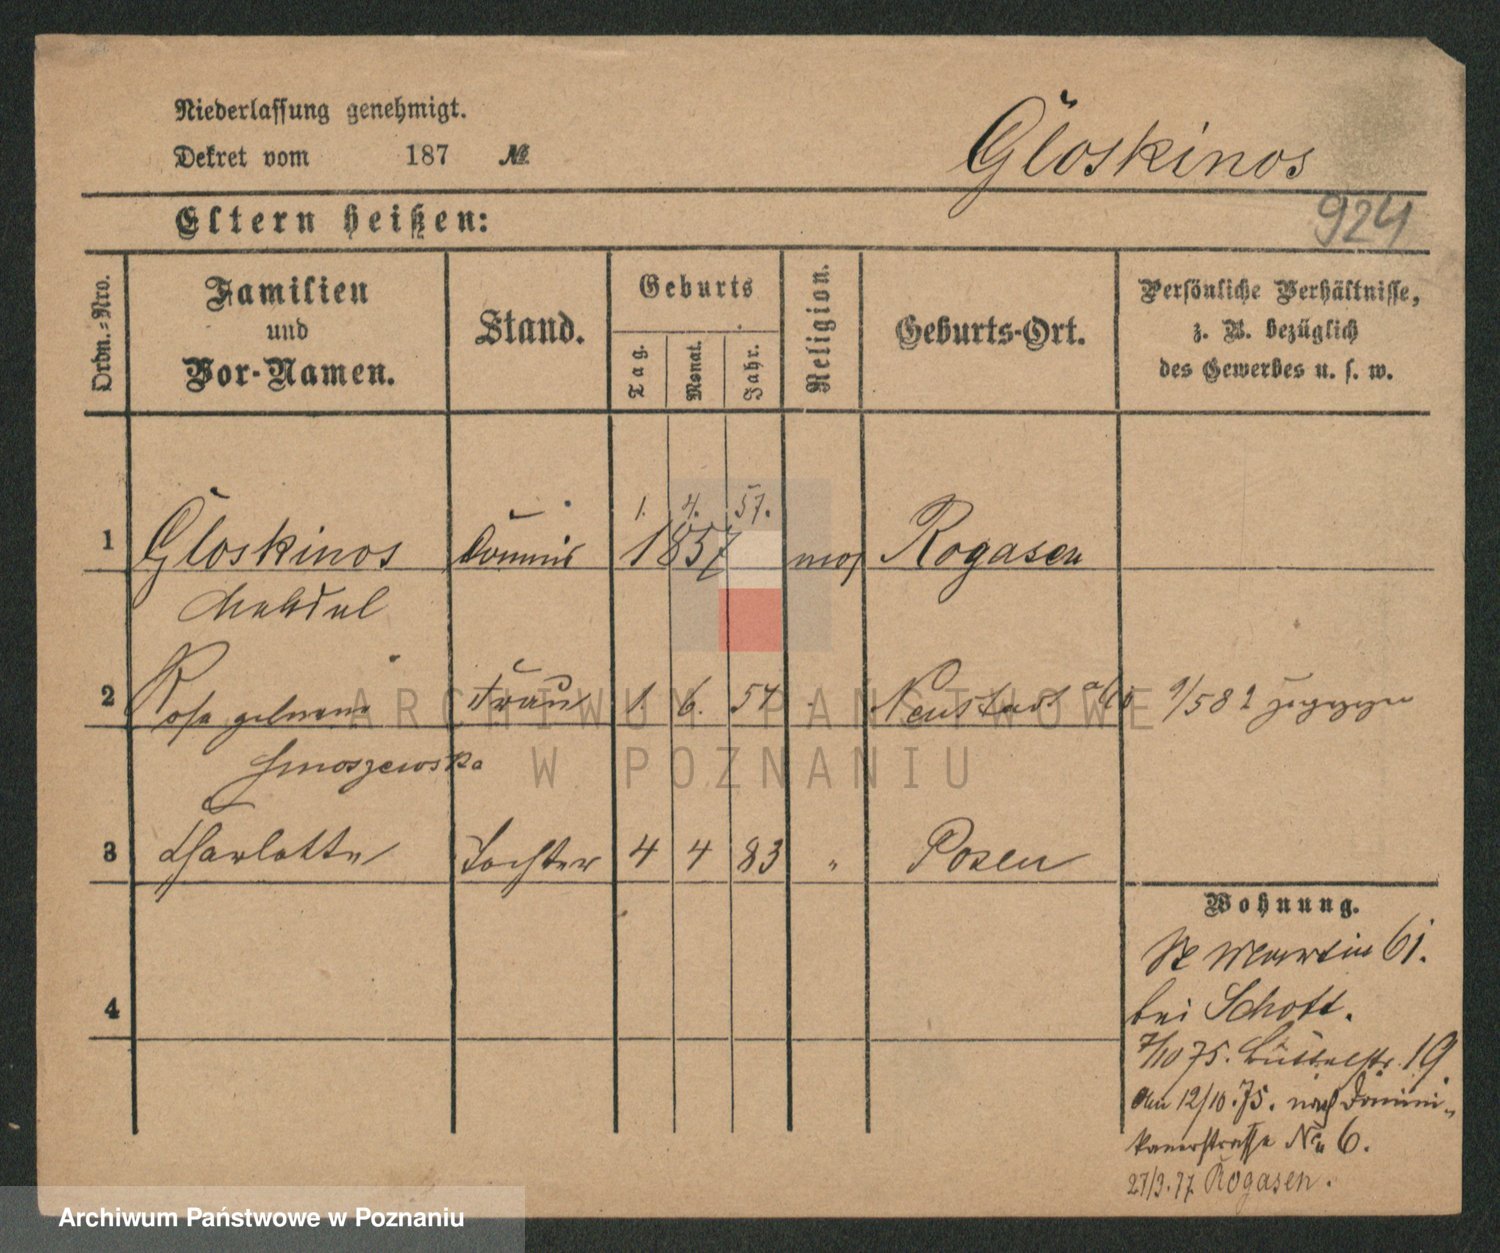 Niederlassung genehmigt.
Dekret vom 187 №
Gloskinos
924
Eltern heißen:
Ordn.-Nro.
Familien
und
Vor-Namen.
Stand.
Geburts
Tag.
Monat.
Jahr.
Religion.
Geburts-Ort.
Persönliche Verhältnisse,
z. B. bezüglich
des Gewerbes u. s. w.
1. 4. 57.
1 Gloskinos Commis 1857 mos Rogasen
2 Rosa geborene Frau 1 6. 57 Neustadt
Smoszewska
3 Charlotte Tochter 4 4 83 " Posen
4
Wohnung.
St Martin 61.
bei Schott.
7/10 75. 19
den 12/10.75. nach Domini-
kanerstrasse No 6.
27/3.77 Rogasen.
ARCHIWUM PAŃSTWOWE
W POZNANIU
Archiwum Państwowe w Poznaniu